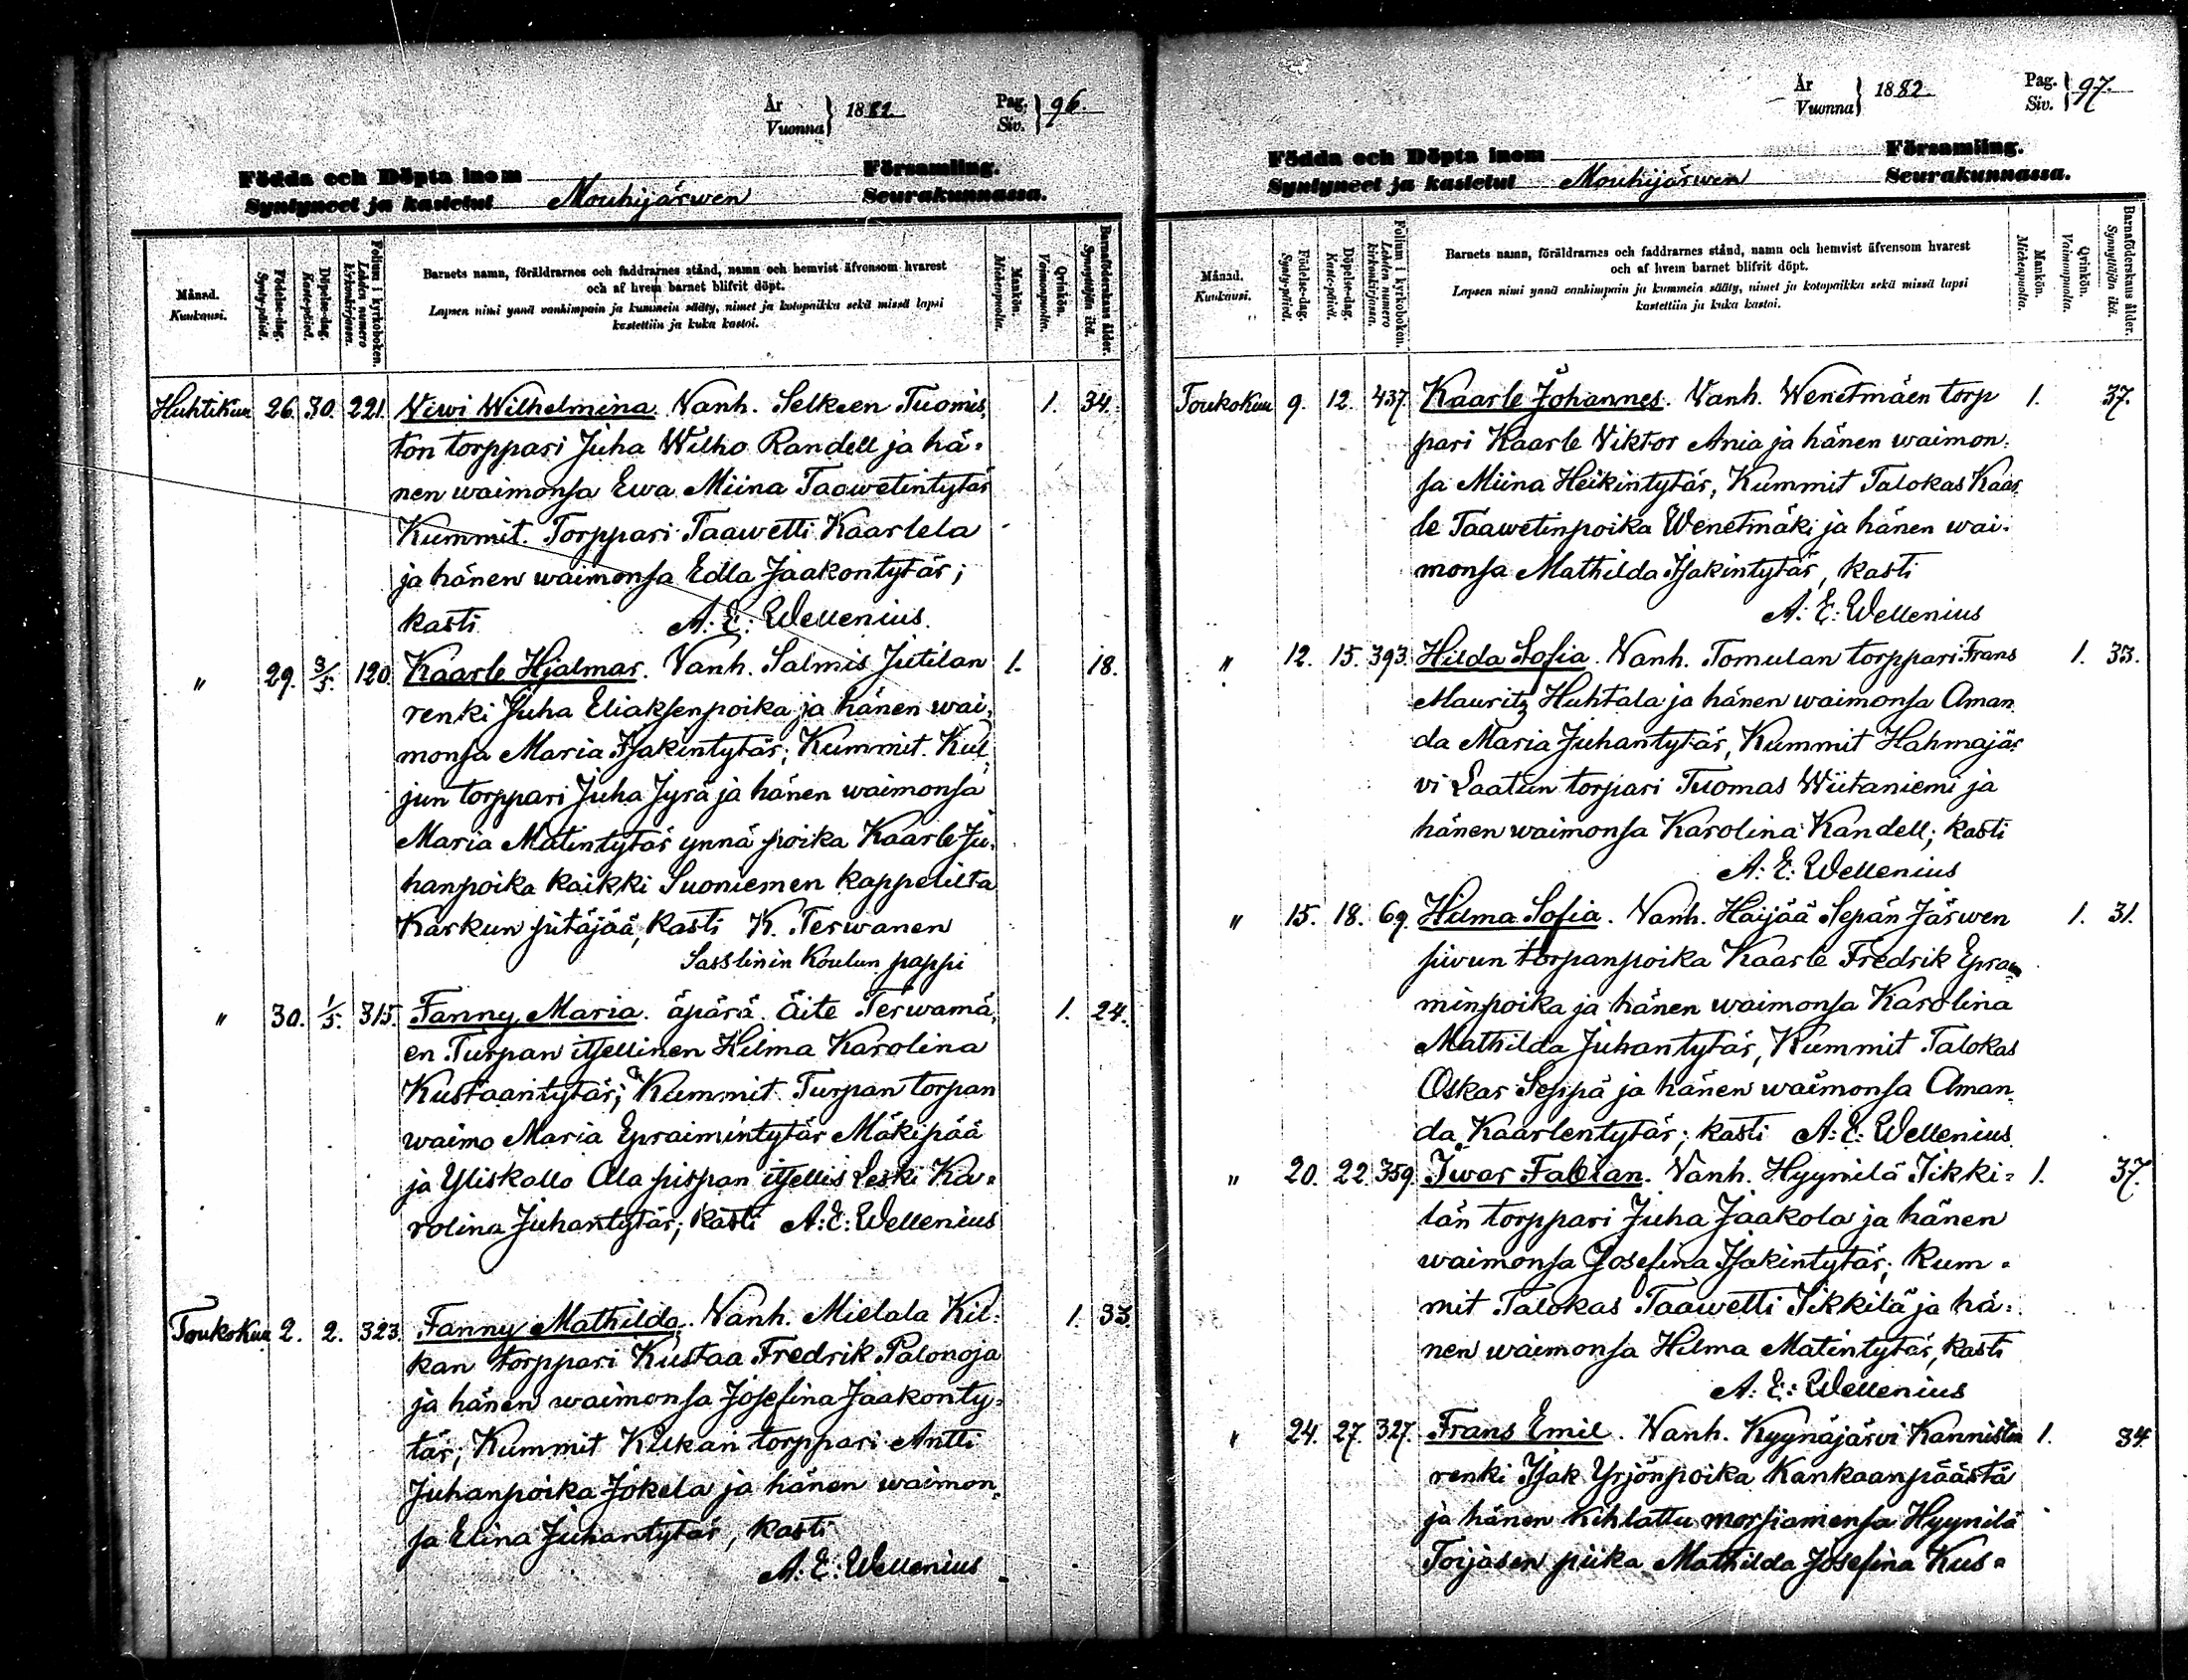 År
Vuonna } 1882.
Pag.
Siv. } 96.
Födda och Döpta inom Församling.
Syntyneet ja kastetut Mouhijärwen Seurakunnassa.
Månad.
Kuukausi.
Födelse-dag.
Synty-päivä.
Döpelse-dag.
Kaste-päivä.
Folium i kyrkoboken.
Lehden numero kirkonkirjassa.
Barnets namn, föräldrarnes och faddrarnes stånd, namn och hemvist äfvensom hvarest
och af hvem barnet blifvit döpt.
Lapsen nimi ynnä vanhimpain ja kummein sääty, nimet ja kotopaikka sekä missä lapsi
kastettiin ja kuka kastoi.
Mankön.
Miehenpuolta.
Qvinkön.
Vaimonpuolta.
Barnaföderskans ålder.
Synnyttäjän ikä.
Huhtikuu 26. 30. 221. Viwi Wilhelmina. Vanh. Selkeen Tuomis, 1. 34.
ton torppari Juha Wilho Randell ja hä-
nen waimonsa Ewa Miina Taawetintytär
Kummit. Torppari Taawetti Kaarlela
ja hänen waimonsa Edla Jaakontytär;
kasti A: E: Wellenius.
" 29. 3/5. 120. Kaarle Hjalmar. Vanh. Salmis Jutilan 1. 18.
renki Juha Eliaksenpoika ja hänen wai,
monsa Maria Isakintytär; Kummit. Kul,
jun torppari Juha Jyrä ja hänen waimonsa
Maria Matintytär ynnä poika Kaarle Ju,
hanpoika kaikki Suoniemen kappelilta
Karkun pitäjää, kasti K. Terwanen
Sasslinin Koulun pappi
" 30. 1/5. 315. Fanny Maria. äpärä. Äite Terwamä, 1. 24.
en Turpan itsellinen Hilma Karolina
Kustaantytär; Kummit. Turpan torpan
waimo Maria Epraimintytär Mäkipää
ja Yliskallo Ala pispan itsellis Leski Ka-
rolina Juhantytär; kasti A: E: Wellenius
Toukokuu 2. 2. 323. Fanny Mathilda. Vanh. Mielala Kil- 1. 33.
kan torppari Kustaa Fredrik Palonoja
ja hänen waimonsa Josefina Jaakonty-
tär; Kummit Kilkan torppari Antti
Juhanpoika Jokela ja hänen waimon,
sa Elina Juhantytär, kasti
A: E: Wellenius
År
Vuonna } 1882
Pag.
Siv. } 97.
Födda och Döpta inom Församling.
Syntyneet ja kastetut Mouhijärwen Seurakunnassa.
Månad.
Kuukausi.
Födelse-dag.
Synty-päivä.
Döpelse-dag.
Kaste-päivä.
Folium i kyrkoboken.
Lehden numero kirkonkirjassa.
Barnets namn, föräldrarnes och faddrarnes stånd, namn och hemvist äfvensom hvarest
och af hvem barnet blifvit döpt.
Lapsen nimi ynnä vanhimpain ja kummein sääty, nimet ja kotopaikka sekä missä lapsi
kastettiin ja kuka kastoi.
Mankön.
Miehenpuolta.
Qvinkön.
Vaimonpuolta.
Barnaföderskans ålder.
Synnyttäjän ikä.
Toukokuu 9. 12. 437. Kaarle Johannes. Vanh. Wenetmäen torp 1. 37.
pari Kaarle Viktor Ania ja hänen waimon,
sa Miina Heikintytär, Kummit Talokas Kaar,
le Taawetinpoika Wenetmäki ja hänen wai-
monsa Mathilda Isakintytär, kasti
A: E: Wellenius
" 12. 15. 393. Hilda Sofia. Vanh. Tomulan torppari Frans 1. 33.
Mauritz Huhtala ja hänen waimonsa Aman
da Maria Juhantytär, Kummit Hahmajär
vi Laatun torpari Tuomas Wiitaniemi ja
hänen waimonsa Karolina Kandell; kasti
A: E: Wellenius
" 15. 18. 69. Hilma Sofia. Vanh. Häijää Sepän Järwen 1. 31.
siwun torpanpoika Kaarle Fredrik Eprai
minpoika ja hänen waimonsa Karolina
Mathilda Juhantytär, Kummit Talokas
Oskar Seppä ja hänen waimonsa Aman,
da Kaarlentytär; kasti A: E: Wellenius
" 20. 22. 359. Iwar Fabian. Vanh. Hyynilä Sikki- 1. 37.
län torppari Juha Jaakola ja hänen
waimonsa Josefina Isakintytär; kum-
mit Talokas Taawetti Sikkilä ja hä-
nen waimonsa Hilma Matintytär, kasti
A: E: Wellenius
" 24. 27. 327. Frans Emil. Vanh. Kyynäjärvi Kannistn 1. 34
renki Isak Yrjönpoika Kankaanpäästä
ja hänen kihlattu morsiamensa Hyynilä
Torjasen piika Mathilda Josefina Kus-